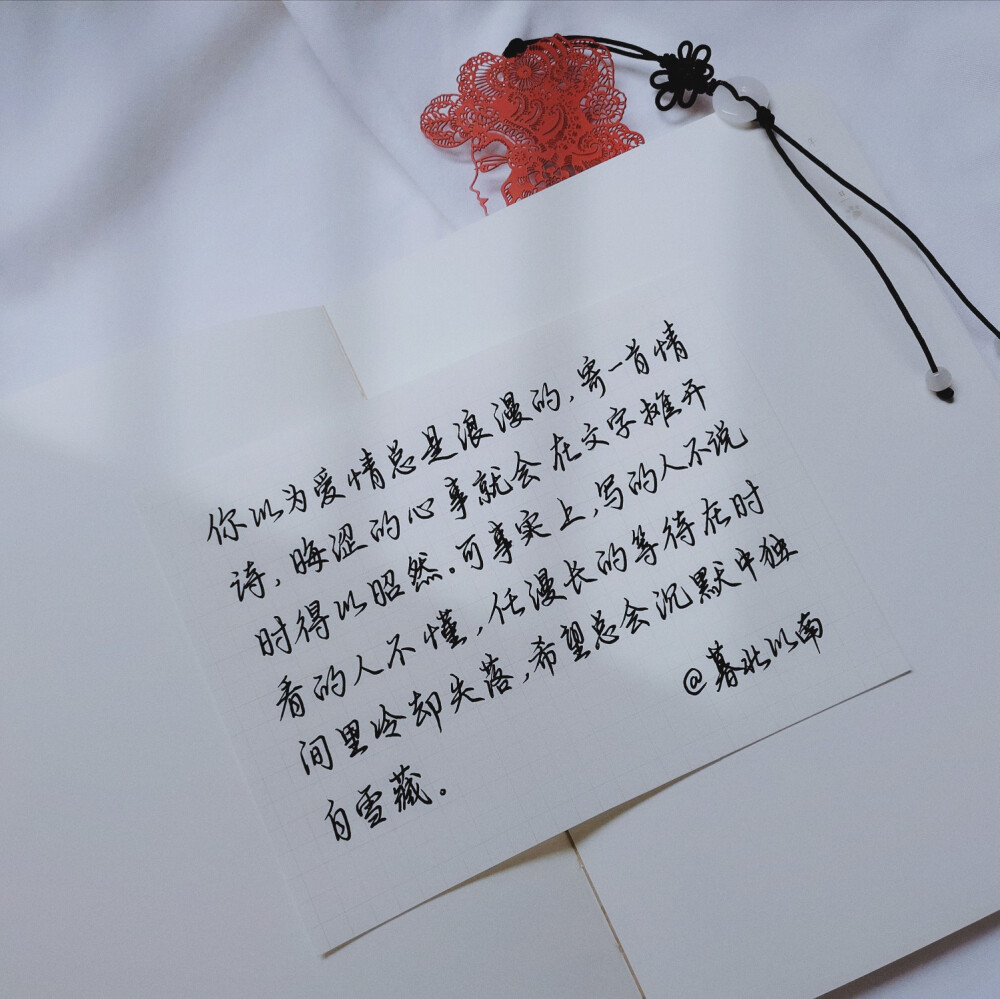 你以为爱情总是浪漫的,寄一首情
诗,晦涩的心事就会在文字摊开
时得以昭然。可事实上,写的人不说
看的人不懂,任漫长的等待在时
间里冷却失落,希望总会沉默中独
自雪藏。
@暮北以南